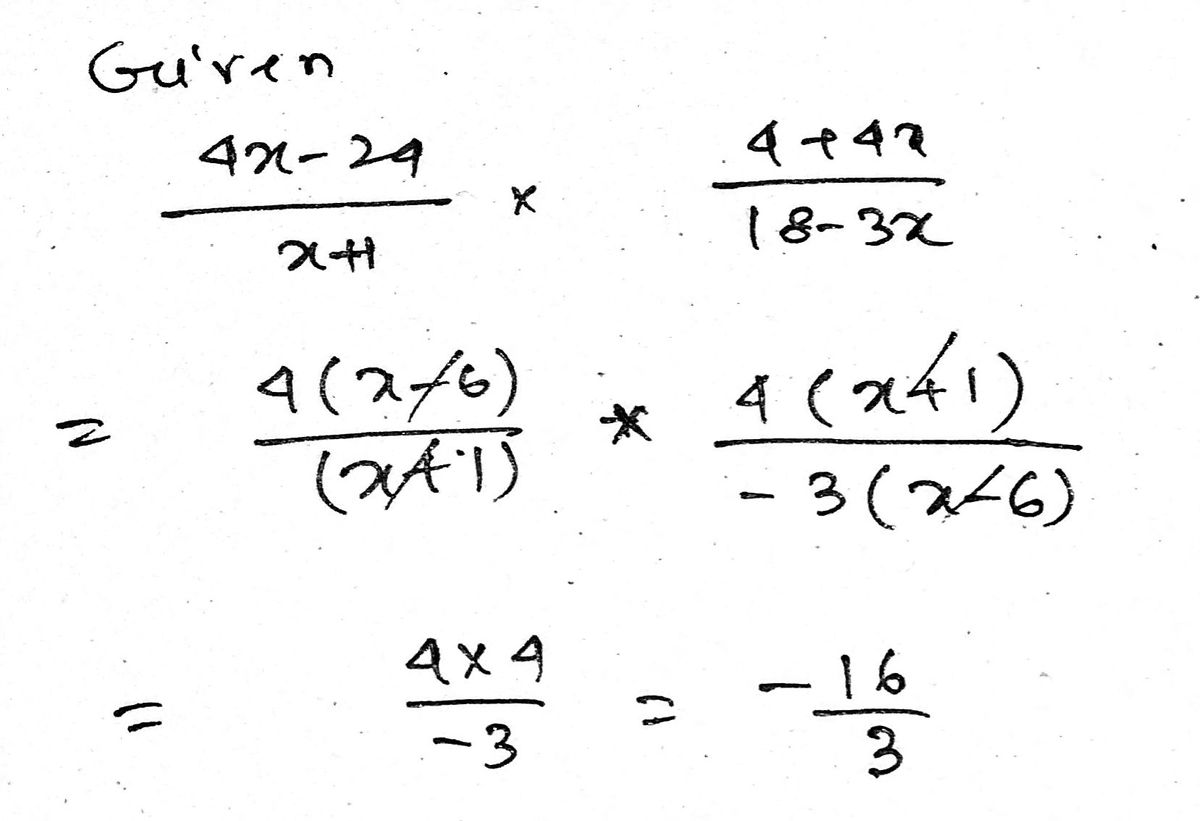 Given
4x-24 / x+1 × 4+4x / 18-3x
= 4(x-6) / (x+1) * 4(x+1) / -3(x-6)
= 4×4 / -3 = -16 / 3